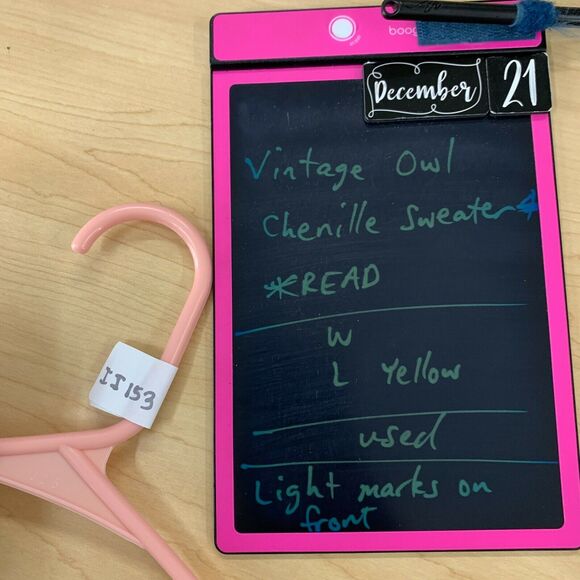 boog
December 21
Vintage Owl
Chenille Sweater
*READ
W
L Yellow
used
Light marks on
front
IJ153